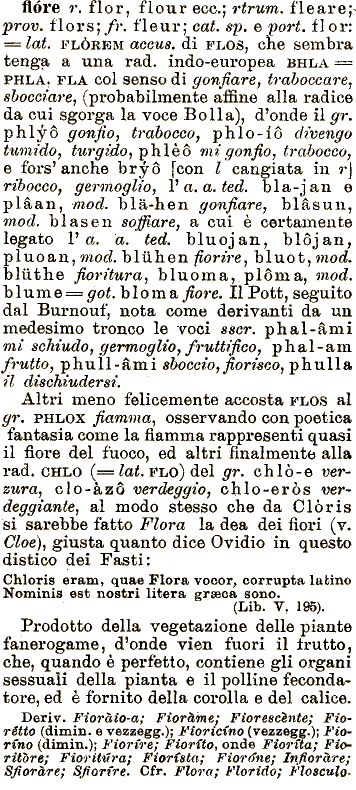 flóre r. flor, flour ecc.; rtrum. fleare;
prov. flors; fr. fleur; cat. sp. e port. flor:
= lat. FLÒREM accus. di FLOS, che sembra
tenga a una rad. indo-europea BHLA =
PHLA. FLA col senso di gonfiare, traboccare,
sbocciare, (probabilmente affine alla radice
da cui sgorga la voce Bolla), d'onde il gr.
phlýô gonfio, trabocco, phlo-iô divengo
tumido, turgido, phlèô mi gonfio, trabocco,
e fors' anche brŷô [con l cangiata in r]
ribocco, germoglio, l' a. a. ted. bla-jan e
plâan, mod. blä-hen gonfiare, blâsun,
mod. blasen soffiare, a cui è certamente
legato l' a. a. ted. bluojan, blôjan,
pluoan, mod. blühen fiorire, bluot, mod.
blüthe fioritura, bluoma, plôma, mod.
blume = got. bloma fiore. Il Pott, seguito
dal Burnouf, nota come derivanti da un
medesimo tronco le voci sscr. phal-âmi
mi schiudo, germoglio, fruttifico, phal-am
frutto, phull-âmi sboccio, fiorisco, phulla
il dischiudersi.
Altri meno felicemente accosta FLOS al
gr. PHLOX fiamma, osservando con poetica
fantasia come la fiamma rappresenti quasi
il fiore del fuoco, ed altri finalmente alla
rad. CHLO (= lat. FLO) del gr. chlò-e ver-
zura, clo-àzô verdeggio, chlo-eròs ver-
deggiante, al modo stesso che da Clòris
si sarebbe fatto Flora la dea dei fiori (v.
Cloe), giusta quanto dice Ovidio in questo
distico dei Fasti:
Chloris eram, quae Flora vocor, corrupta latino
Nominis est nostri litera græca sono.
(Lib. V, 195).
Prodotto della vegetazione delle piante
fanerogame, d'onde vien fuori il frutto,
che, quando è perfetto, contiene gli organi
sessuali della pianta e il polline feconda-
tore, ed è fornito della corolla e del calice.
Deriv. Fioràio-a; Fioràme; Fiorescènte; Fio-
rétto (dimin. e vezzegg.); Fioricíno (vezzegg.); Fio-
ríno (dimin.); Fioríre; Fioríto, onde Fioríta; Fio-
ritòre; Fioritúra; Fiorísta; Fioróne; Infioràre;
Sfioràre; Sfioríre. Cfr. Flora; Florido; Flosculo.